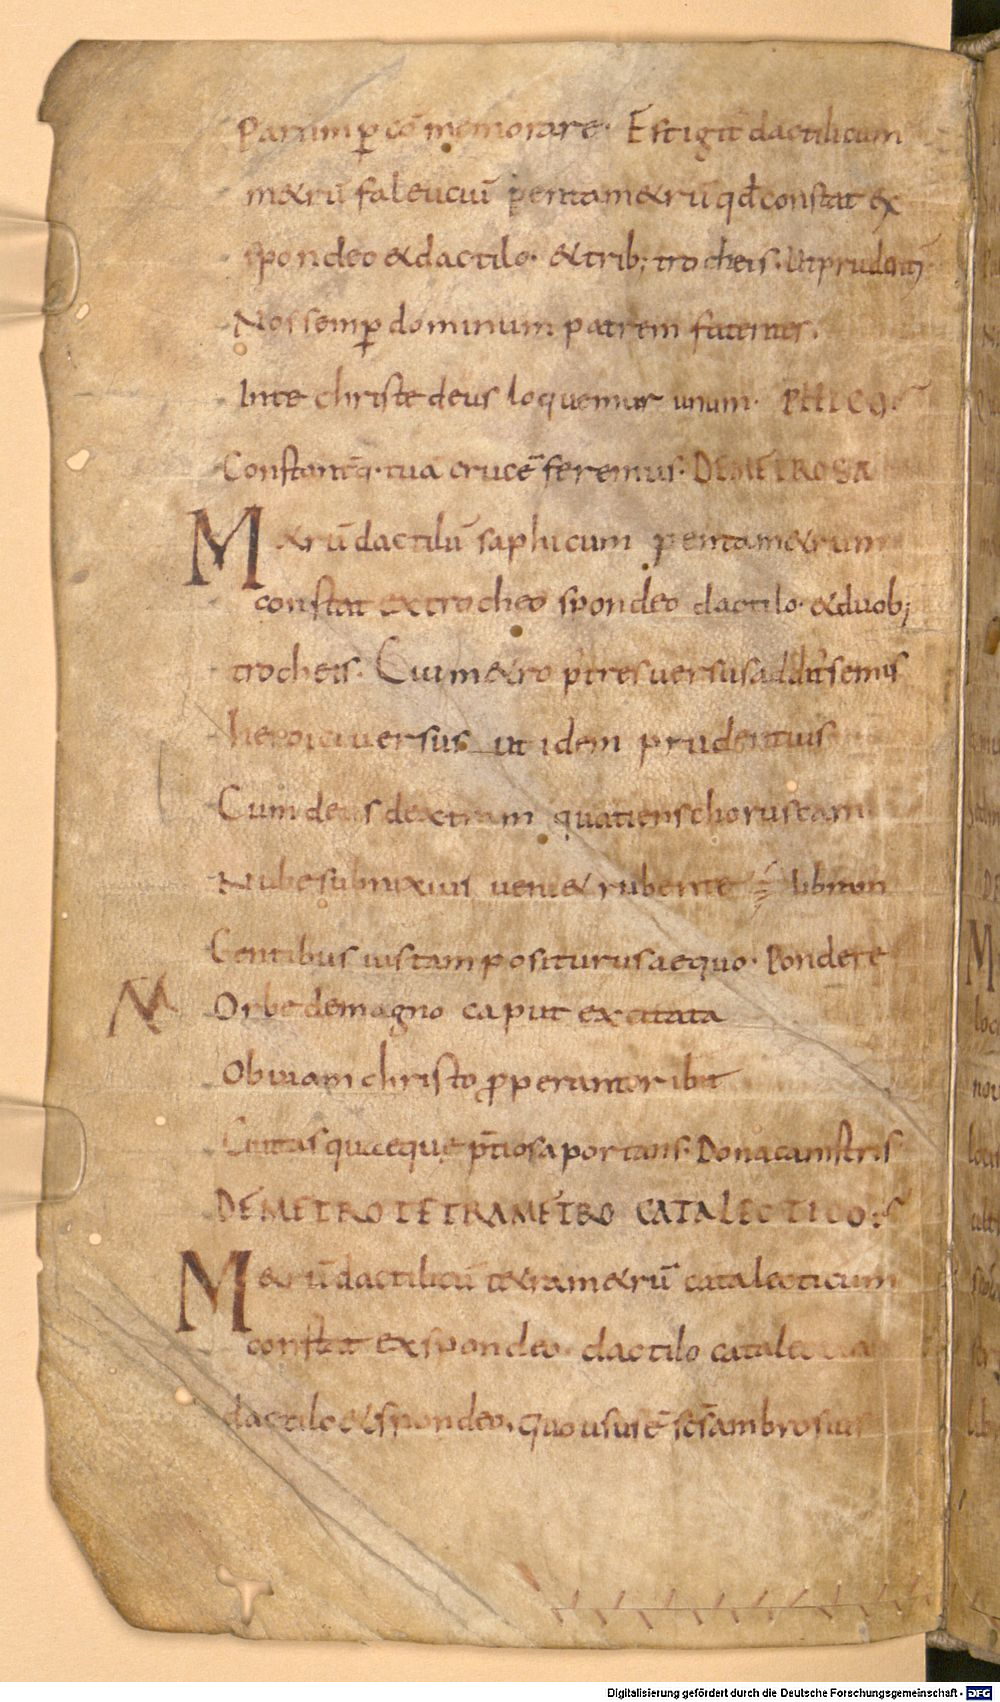 Parum p̲ cō memorare. Est igit̄ dactilicum
m&rū faleuciū pentam&rū qđ constat ex
spondeo & dactilo. & trib; trocheis. ut prudenti
Nos semp̲ dominum patrem fatentes.
In te christe deus loquemur unum. PHICO
Constant&q· tuā crucē feremus. DEMETROSA
M&rū dactilū saphicum pentam&rum
constat ex trocheo spondeo dactilo. & duob;
trocheis. Cui m&ro p̄ tres versus addit̄ semis
heroici versus ut idem prudentius
Cum deus dextram quatiens choruscam
Nube subnixus veni& rubente libram
Gentibus iustam positurus aequo. Pondere
Orbe de magno caput excitata
Obviam christo p̱perantor ibit
Civitas quaeque p̄tiosa portans. Dona canistris
DEMETRO TETRAMETRO CATALECTICO:
M&rū dactilicū t&ram&rū catalecticum
constat ex spondeo. dactilo catalectico
dactilo & spondeo. quo usus ē sc̄s ambrosius
Digitalisierung gefördert durch die Deutsche Forschungsgemeinschaft - DFG